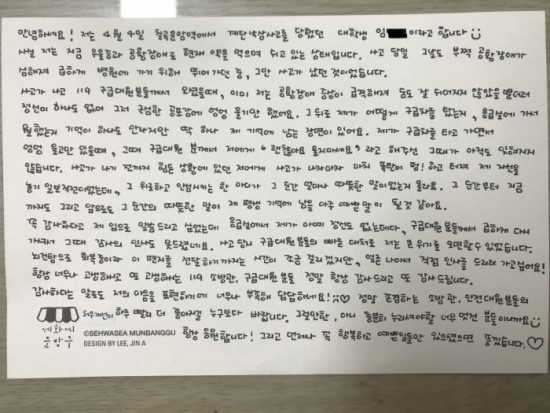 안녕하세요! 저는 4월 4일 칠곡운암역에서 계단낙상사고를 당했던 대학생 임 이라고 합니다
사실 저는 지금 우울증과 공황장애로 현재 약을 먹으며 쉬고 있는 상태입니다. 사고 당일 그날도 부쩍 공황장애가
심해져 급하게 병원에 가기 위해 뛰어가던 중, 그만 사고가 났던 것이었습니다.
사고가 나고 119 구급대원분들께서 오셨을때, 이미 저는 공황장애 증상이 급격하게 숨도 잘 쉬어지지 않았을 뿐더러
정신이 하나도 없어 그저 극심한 공포감에 엉엉 울기만 했어요. 그 뒤로 제가 어떻게 구급차를 탔는지, 응급실에 가서
뭘 했는지 기억이 하나도 안나지만 딱 하나 제 기억에 남는 장면이 있어요. 제가 구급차를 타고 가면서
엉엉 울고만 있을때, 그때 구급대원 분께서 저에게 "괜찮아요 울지마세요" 라고 해주신 그때가 아직도 잊혀지지
않습니다. 사고가 나기 전까지 힘든 상황에 있던 저에게 사고가 나자마자 마치 폭탄이 펑! 하고 터져 제 자신을
놓기 일보직전이었는데, 그 위로하고 안심시키는 한 마디가 그 순간 얼마나 따뜻한 말이었는지 몰라요. 그 순간부터 지금
까지도 그리고 앞으로도 그 순간의 따뜻한 말이 제 평생 기억에 남을 아주 예쁜 말이 될 것 같아요.
꼭 감사하다고 제 입으로 말씀드리고 싶었는데 응급실에서 제가 아예 정신도 없는데다, 구급대원분들께서 급하게 다시
가셔서 그때 감사의 인사도 못드렸네요. 사고 당시 구급대원분들의 빠른 대처로 저는 큰 위기를 모면할 수 있었습니다.
뇌진탕으로 회복중이라 이 편지를 전달하기까지는 시간이 조금 걸리겠지만, 얼른 나아서 직접 인사를 드리러 가고싶어요!
항상 너무나 고생하고 또 고생하는 119 소방관. 구급대원 분들 정말 항상 감사드리고 또 감사드립니다.
감사하다는 말로도 저의 마음을 표현하기에 너무나 부족해 답답하네요! 정말 존경하는 소방관, 안전대원분들의
처우개선이 하루 빨리 더 좋아지길 누구보다 바랍니다. 그럴만한, 아니 충분히 누리셔야할 너무 멋진 분들이니까요
항상 응원합니다! 그리고 언제나 꼭 행복하고 예쁜일들만 있으셨으면 좋겠습니다.♡
세화씨
문방구
©SEHWASEA MUNBANGGU
DESIGN BY LEE, JIN A